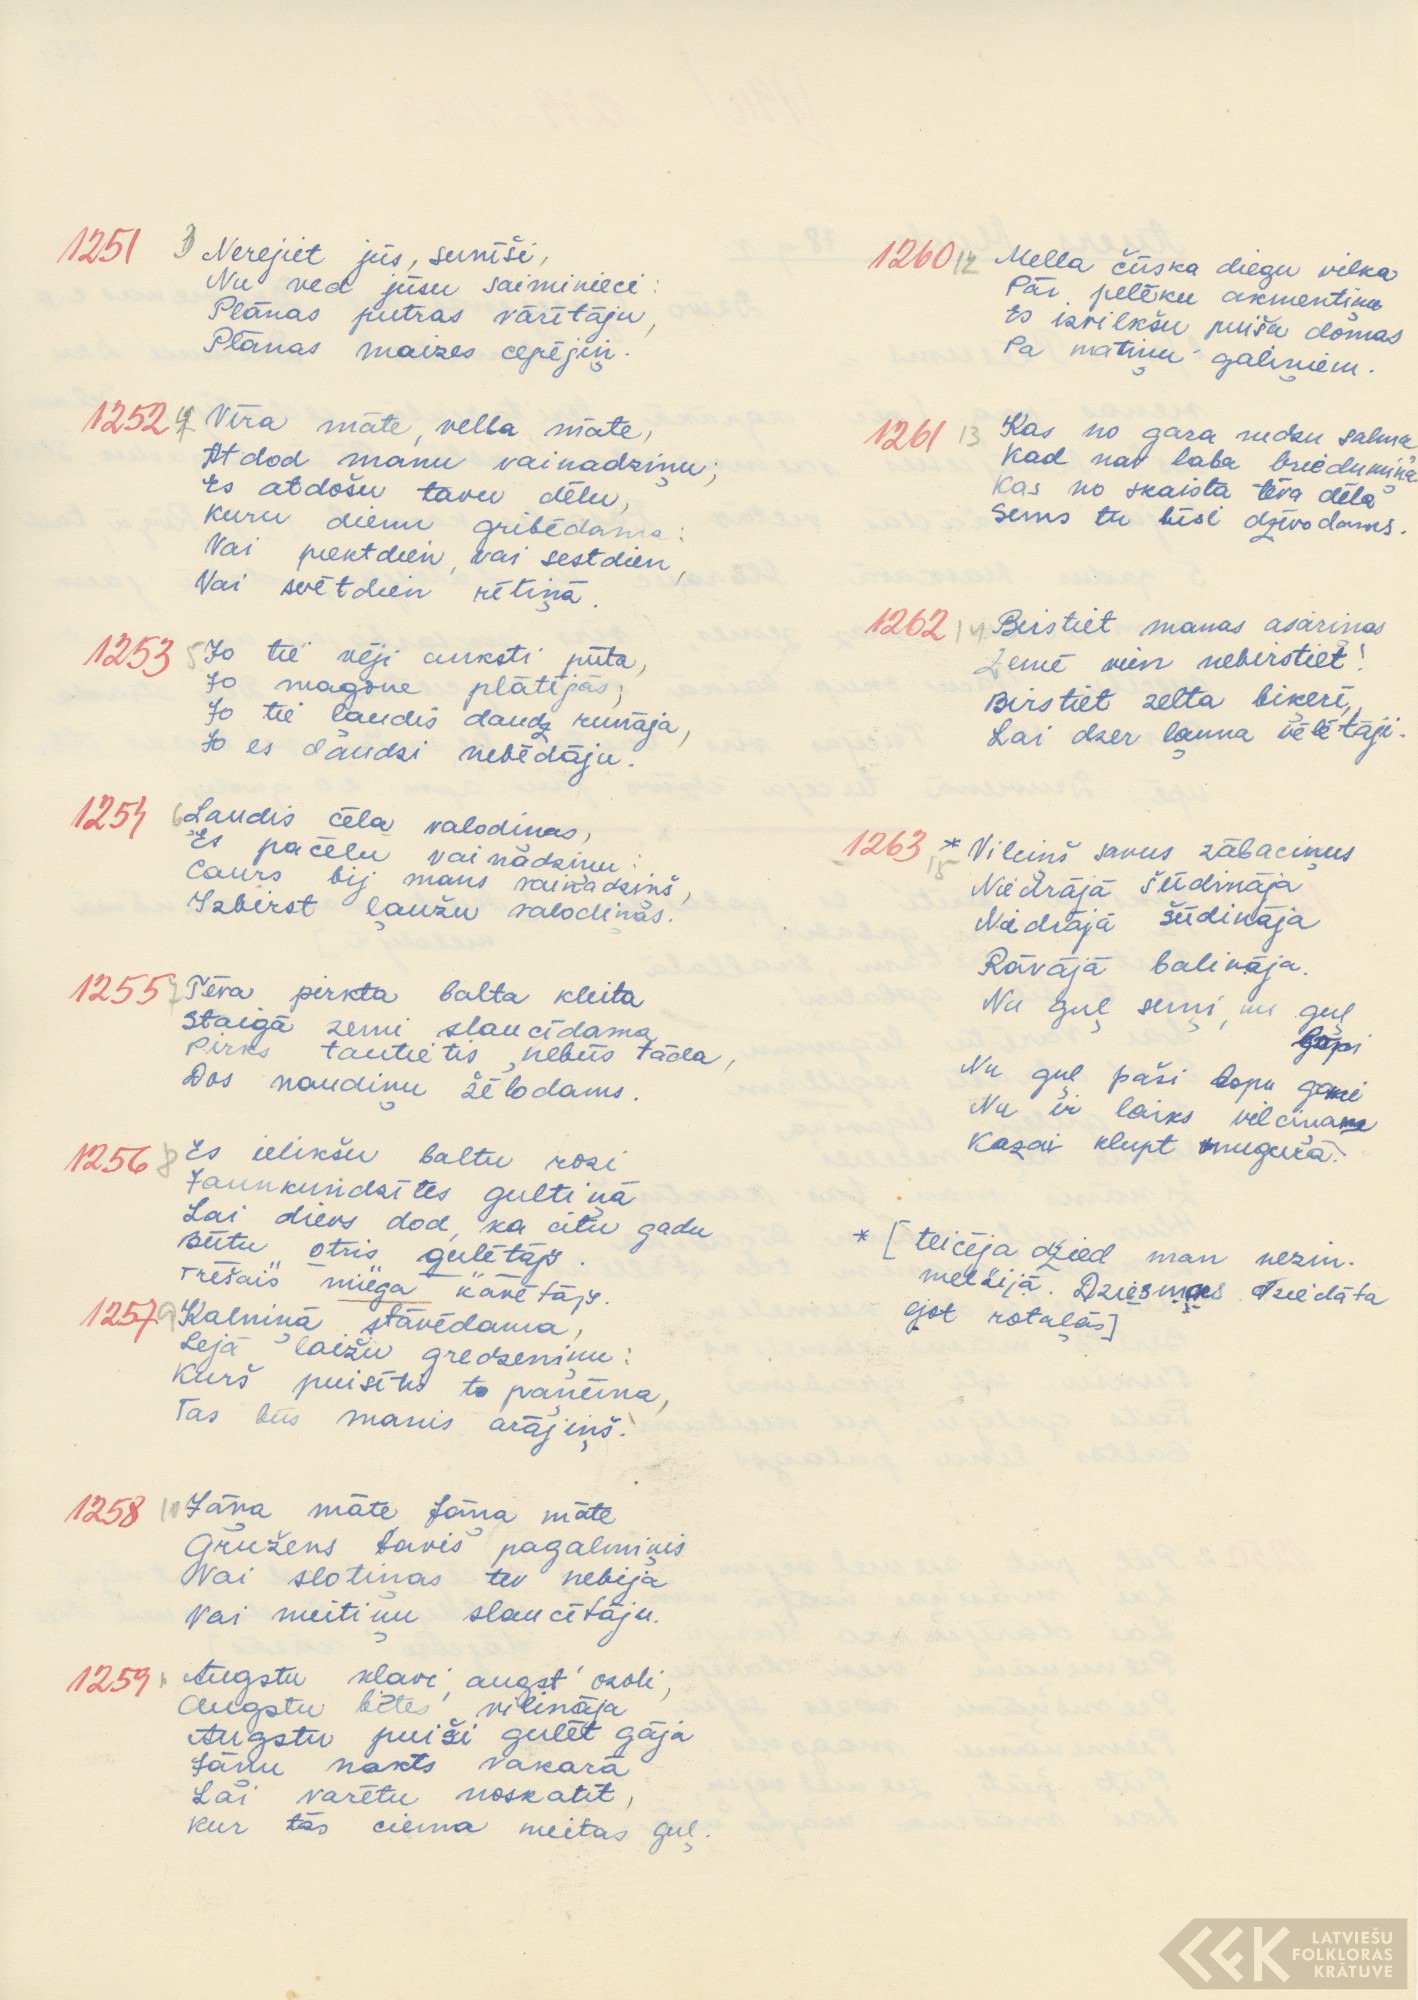 1251 3 Nerejiet jūs, sunīši,
Nu ved jūsu saiminieci:
Plānas putras vārītāju,
Plānas maizes cepējiņ.
1252 4 Vīra māte, vella māte,
Atdod manu vainadziņu;
Es atdošu tavu dēlu,
Kuru dienu gribēdama:
Vai piektdien, vai sestdien,
Vai svētdien rītiņā.
1253 5 Jo tie vēji auksti pūta,
Jo magone plātījās;
Jo tie laudis daudz runāja,
Jo es daudzi nebēdāju.
1254 6 Laudis cēla valodinas,
Es pacēlu vainadziņu:
Caurs bij mans vainadziņš,
Izbirst ļaužu valodiņas.
1255 7 Tēva pirkta balta kleita
Staigā zemi slaucīdama
Pirks tautietis, nebūs tāda,
Dos naudiņu žēlodams.
1256 8 Es ielikšu baltu rozi
Jaunkundzītes gultiņā
Lai dievs dod, ka citu gadu
Būtu otris gulētājs.
Trešais miega kavētājs.
1257 9 Kalniņā stāvēdama,
Lejā laižu gredzeniņu:
Kurš puisītis to paņēma,
Tas būs manis arājiņš.
1258 10 Jāņa māte Jāņa māte
Gružens tavis pagalmiņis
Vai slotiņas tev nebija
Vai meitiņu slaucītāju.
1259 Augstu klavi, augst' ozoli,
Augstu bites vilināja
Augstu puiši gulēt gāja
Jāņu nakts vakarā
Lai varētu noskatīt,
Kur tās ciema meitas guļ.
1260 12 Mella čūska diegu vilka
Pār pelēku akmentiņu
Es izvilkšu puiša domas
Pa matiņu galiņiem.
1261 13 Kas no gara rudzu salma
Kad nav laba briedumiņa
Kas no skaista tēva dēla
Sems tu būsi dzīvodams.
1262 14 Birstiet manas asariņas
Zemē vien nebirstiet!
Birstiet zelta biķerī,
Lai dzer ļauna vēlētāji.
1263 15 * Vilciņš savus zābaciņus
Niedrājā šūdināja
Niedrājā šūdināja
Rāvājā balināja.
Nu guļ suņi, nu guļ
gani
Nu guļ paši lopu gani
Nu ir laiks vilciņam
Kazai klupt mugurā.
* [teicēja dzied man nezin.
meldijā. Dziesmas dziedāta
ejot rotaļās]
LATVIEŠU
FOLKLORAS
KRĀTUVE